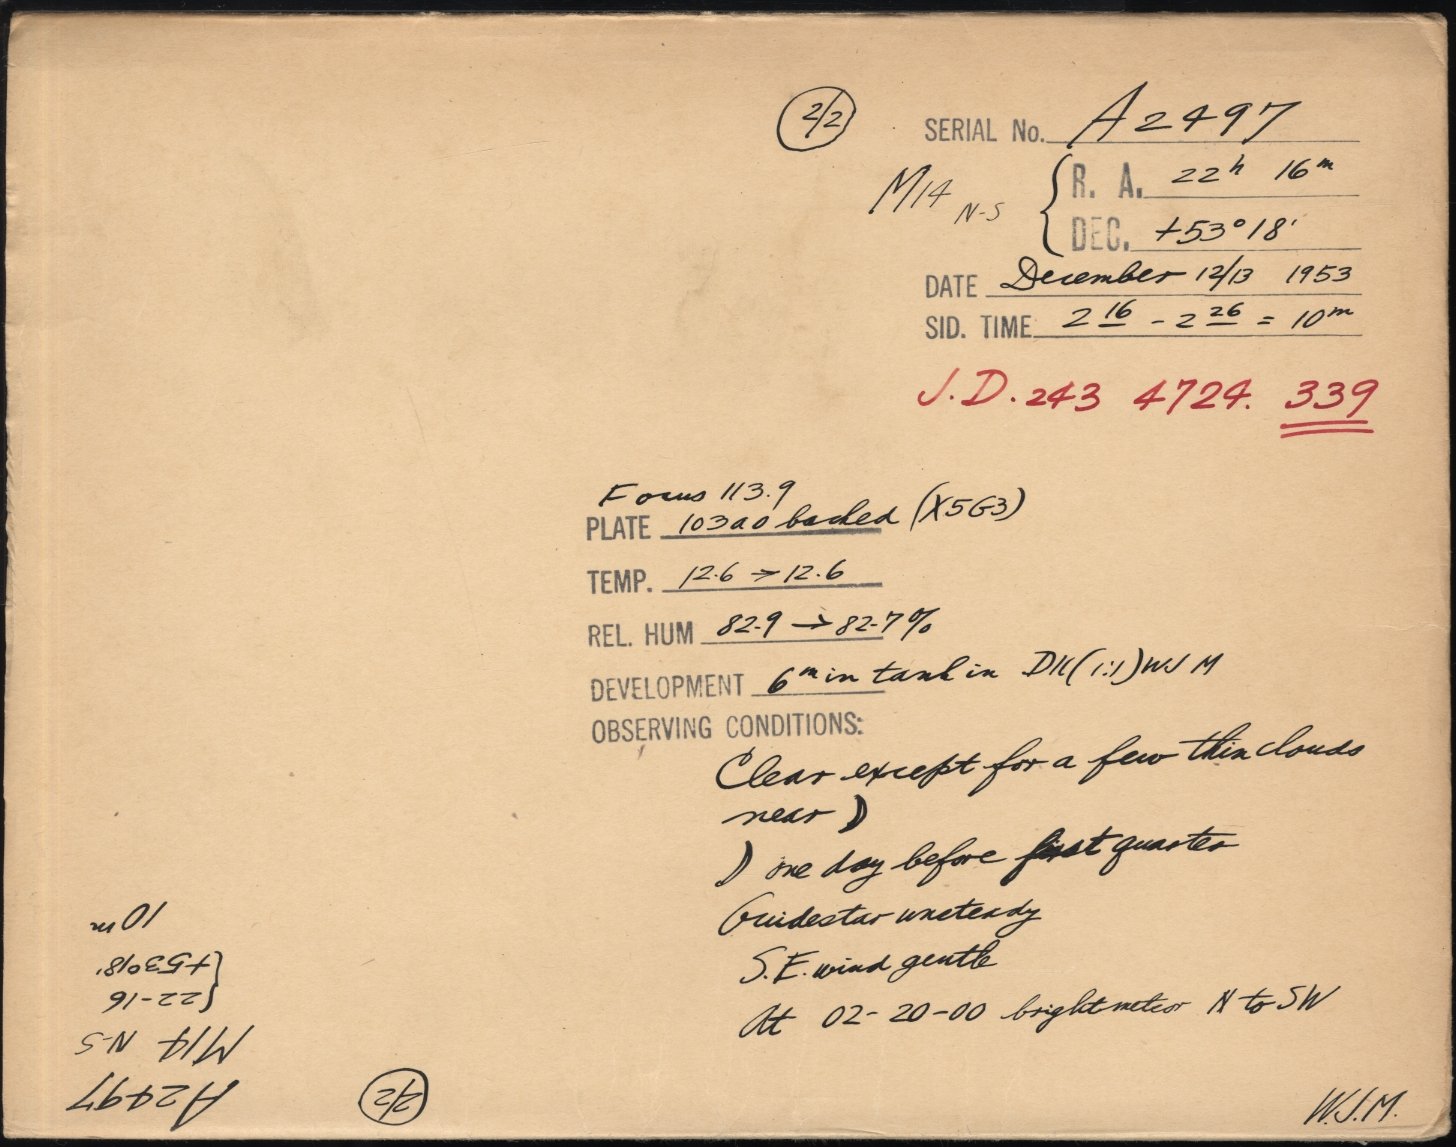 2/2
SERIAL No. A2497
M14 N-S { R. A. 22ʰ 16ᵐ
DEC. +53°18'
DATE December 12/13 1953
SID. TIME 2 16 - 2 26 = 10ᵐ
J.D. 243 4724. 339
Focus 113.9
PLATE 103a0 backed (X5G3)
TEMP. 12.6 → 12.6
REL. HUM 82.9 → 82.7%
DEVELOPMENT 6ᵐ in tank in DK(1:1) WJM
OBSERVING CONDITIONS:
Clear except for a few thin clouds
near ☽
☽ one day before first quarter
Guidestar unsteady
S.E. wind gentle
At 02-20-00 bright meteor N to SW
W.J.M.
2/2
A2497
M14 N-S
{22-16
+53°18'
10ᵐ